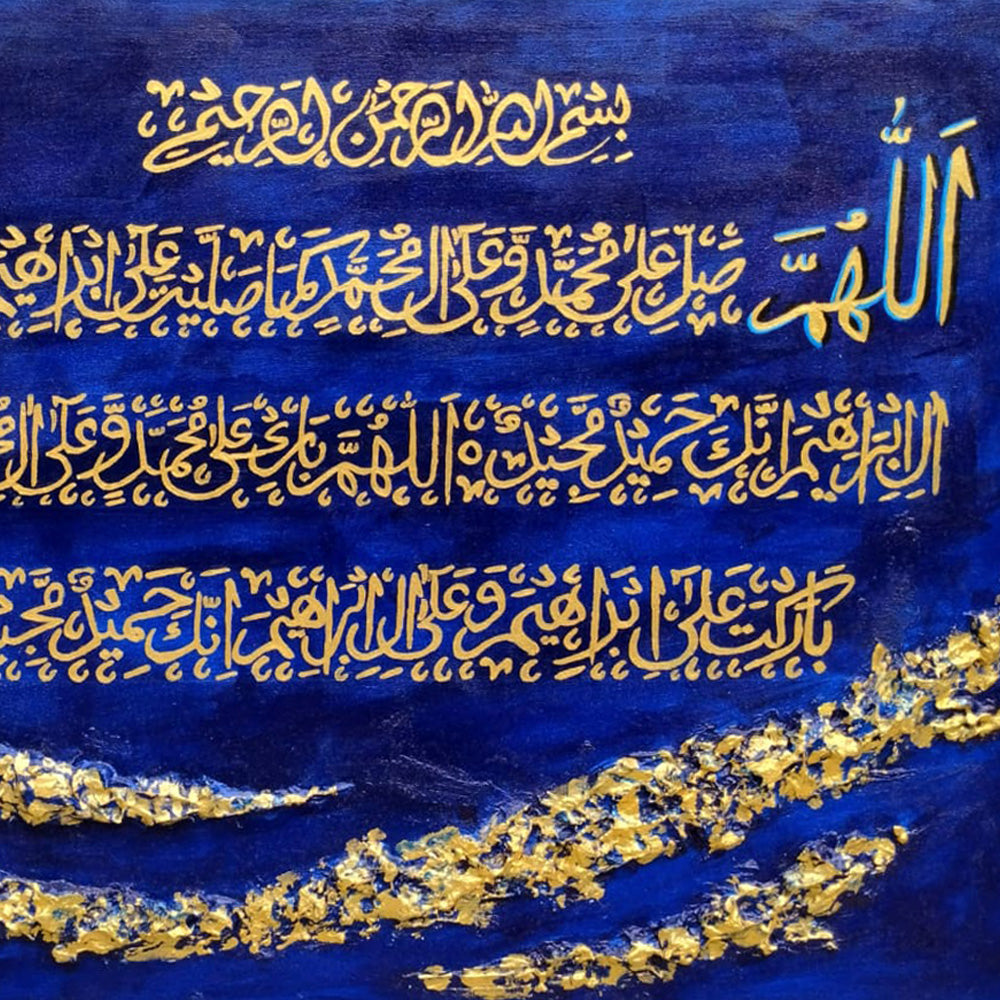 بِسْمِ اللهِ الرَّحْمٰنِ الرَّحِيْمِ
اَللّٰهُمَّ صَلِّ عَلٰى مُحَمَّدٍ وَّعَلٰٓى اٰلِ مُحَمَّدٍ كَمَا صَلَّيْتَ عَلٰٓى اِبْرَاهِيْ
اٰلِ اِبْرَاهِيْمَ اِنَّكَ حَمِيْدٌ مَّجِيْدٌ ه اَللّٰهُمَّ بَارِكْ عَلٰى مُحَمَّدٍ وَّعَلٰٓى اٰلِ
بَارَكْتَ عَلٰٓى اِبْرَاهِيْمَ وَعَلٰٓى اٰلِ اِبْرَاهِيْمَ اِنَّكَ حَمِيْدٌ مَّجِيْ